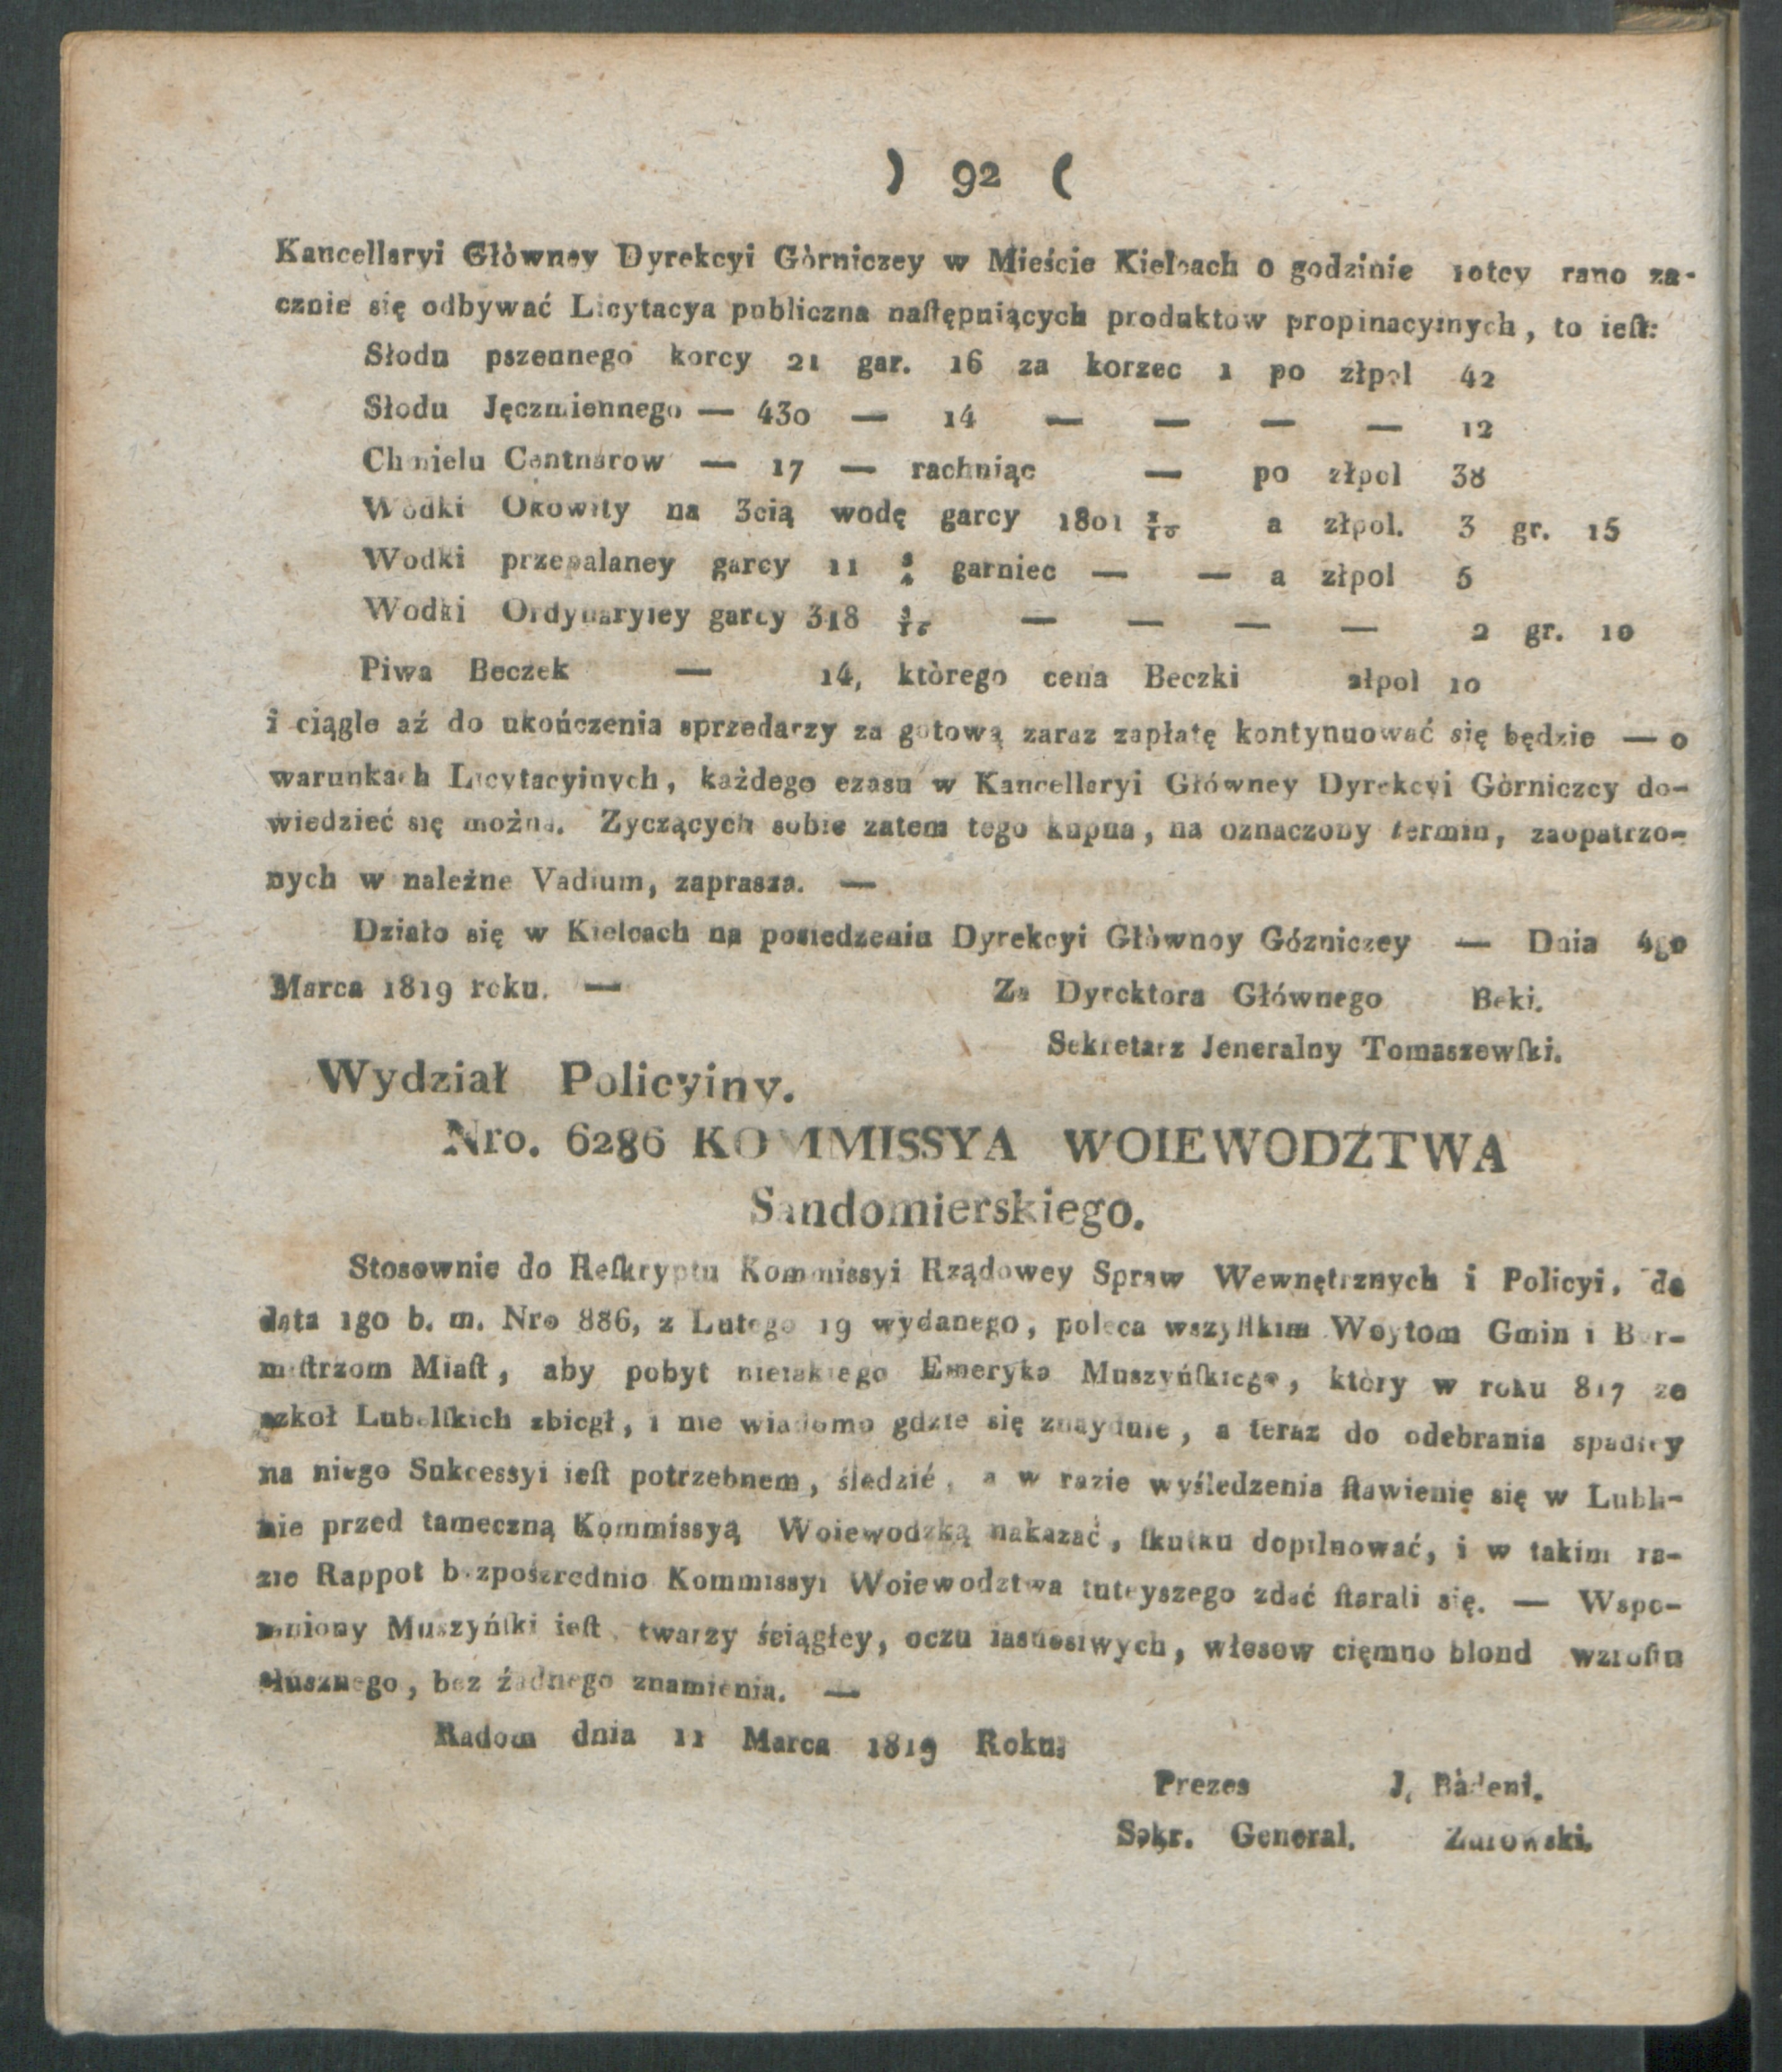 ) 92 (
Kancellaryi Głòwney Dyrekcyi Gòrniczey w Mieście Kielcach o godzinie 10tey rano za-
cznie się odbywać Licytacya publiczna naſtępuiących produktow propinacyinych, to ieſt:
Słodu pszennego korcy 21 gar. 16 za korzec 1 po złpol 42
Słodu Jęczmiennego — 430 — 14 — — — — 12
Chmielu Centnarow — 17 — rachuiąc — po złpol 38
Wodki Okowity na 3cią wodę garcy 1801 a złpol. 3 gr. 15
Wodki przepalaney garcy 11 garniec — — a złpol 5
Wodki Ordynaryiey garcy 318 — — — — 2 gr. 10
Piwa Beczek — 14, ktòrego cena Beczki złpol 10
i ciągle aź do ukończenia sprzedarzy za gotową zaraz zapłatę kontynuować się będzie — o
warunkach Licytacyinych, każdego czasu w Kancellaryi Główney Dyrekcyi Gòrniczey do-
wiedzieć się można. Zyczących sobie zatem tego kupna, na oznaczony termin, zaopatrzo-
nych w należne Vadium, zaprasza. —
Działo się w Kielcach na posiedzeniu Dyrekcyi Głòwnoy Gózniczey — Dnia 4go
Marca 1819 roku. — Za Dyrektora Głównego Beki.
Sekretarz Jeneralny Tomaszewſki.
Wydział Policyiny.
Nro. 6286 KOMMISSYA WOIEWODZTWA
Sandomierskiego.
Stosownie do Reſkryptu Kommissyi Rządowey Spraw Wewnętrznych i Policyi, de
data 1go b. m. Nro 886, z Lutego 19 wydanego, poleca wszyſtkim Woytom Gmin i Bur-
miſtrzom Miaſt, aby pobyt nieiakiego Emeryka Muszyńſkiego, ktòry w roku 817 ze
szkoł Lubelſkich zbiegł, i nie wiadomo gdzie się znayduie, a teraz do odebrania spadłey
na niego Sukcessyi ieſt potrzebnem, śledzić, a w razie wyśledzenia ſtawienie się w Lubli-
nie przed tameczną Kommissyą Woiewodzką nakazać, ſkutku dopilnować, i w takim ra-
zie Rappot bezpośzrednio Kommissyi Woiewodztwa tuteyszego zdać ſtarali się. — Wspo-
mniony Muszyńſki ieſt twarzy ściągłey, oczu iasnosiwych, włosow cięmno blond wzroſtu
słusznego, bez źadnego znamienia. —
Radom dnia 11 Marca 1819 Roku;
Prezes J. Bàdeni.
Sekr. General. Zurowski.